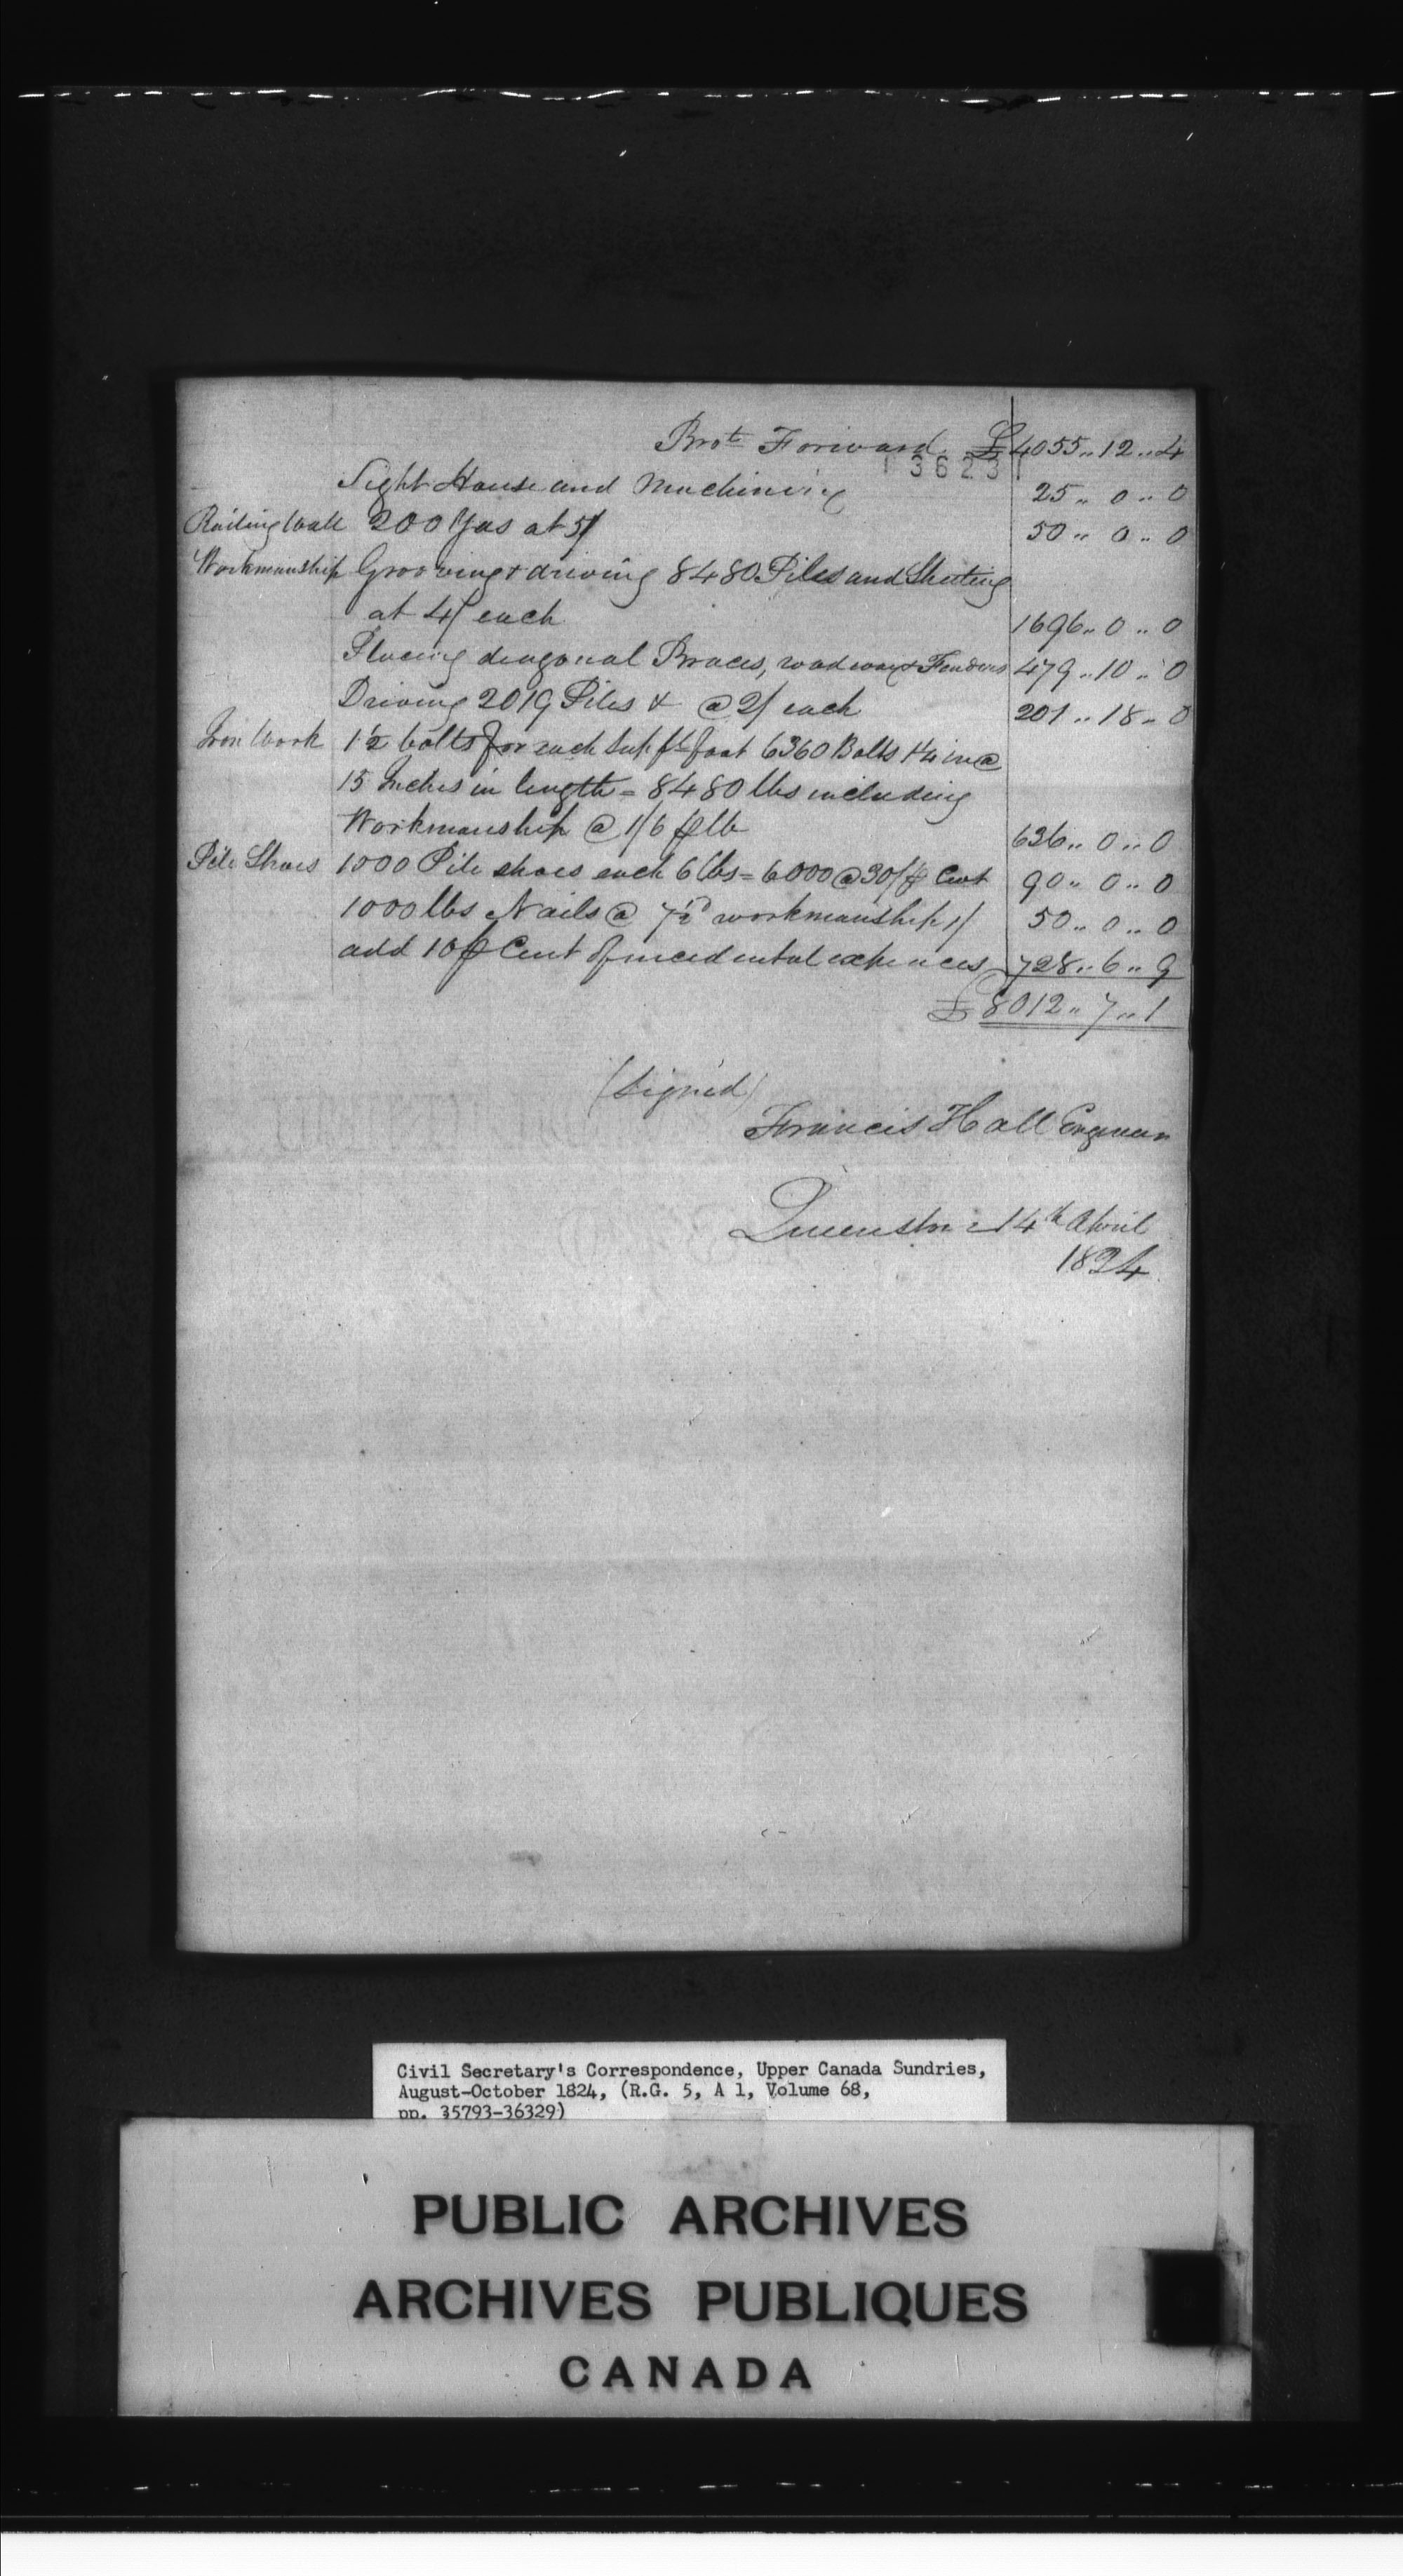 Brot Forward £4055..12..4
13623
Light House and Machinery 25..0..0
Railing Wall 200 Yds at 5/ 50..0..0
Workmanship Grooving & driving 8480 Piles and Sheeting
at 4/ each 1696..0..0
Placing diagonal Braces, roadway & Fenders 479..10..0
Driving 2019 Piles & @ 2/ each 201..18..0
Iron Work 1½ bolts for each Sup fl foot 6360 Bolts 1¼ in @
15 Inches in length = 8480 lbs including
Workmanship @ 1/6 ⅌ lb 636..0..0
Pile Shoes 1000 Pile shoes each 6 lbs = 6000 @ 30/ ⅌ Cwt 90..0..0
1000 lbs Nails @ 7½d workmanship 1/ 50..0..0
add 10 ⅌ Cent for incidental expences 728..6..9
£8012..7..1
(Signed)
Francis Hall Engineer
Queenston 14th April
1824
Civil Secretary's Correspondence, Upper Canada Sundries,
August-October 1824, (R.G. 5, A 1, Volume 68,
pp. 35793-36329)
PUBLIC ARCHIVES
ARCHIVES PUBLIQUES
CANADA